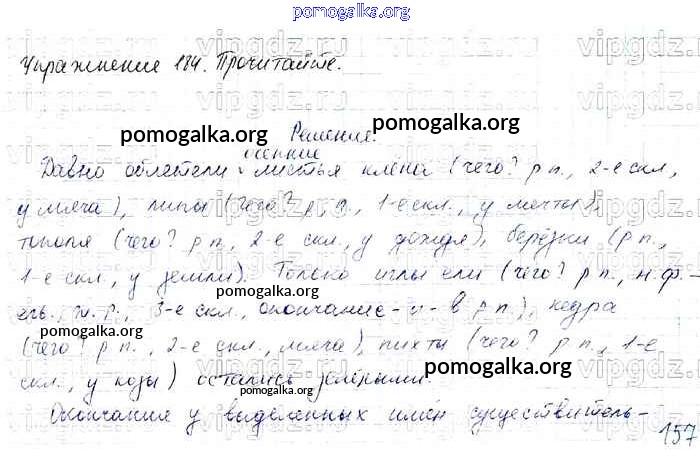 pomogalka.org
Упражнение 184. Прочитайте.
Решение.
осенние
Давно облетели листья клёна (чего? р п., 2-е скл.,
у мяча), липы (чего? р. п., 1-е скл., у мечты),
тополя (чего? р п., 2-е скл., у дождя), берёзки (р п.,
1-е скл., у земли). Только иглы ели (чего? р п., н. ф. -
ель, ж. р., 3-е скл., окончание -и- в р п.), кедра
(чего? р п., 2-е скл., мяча), пихты (чего? р п., 1-е
скл., у козы) остались зелёными.
Окончания у выделенных имён существитель-
157
vipgdz.ru
pomogalka.org
pomogalka.org
pomogalka.org
pomogalka.org
pomogalka.org
pomogalka.org